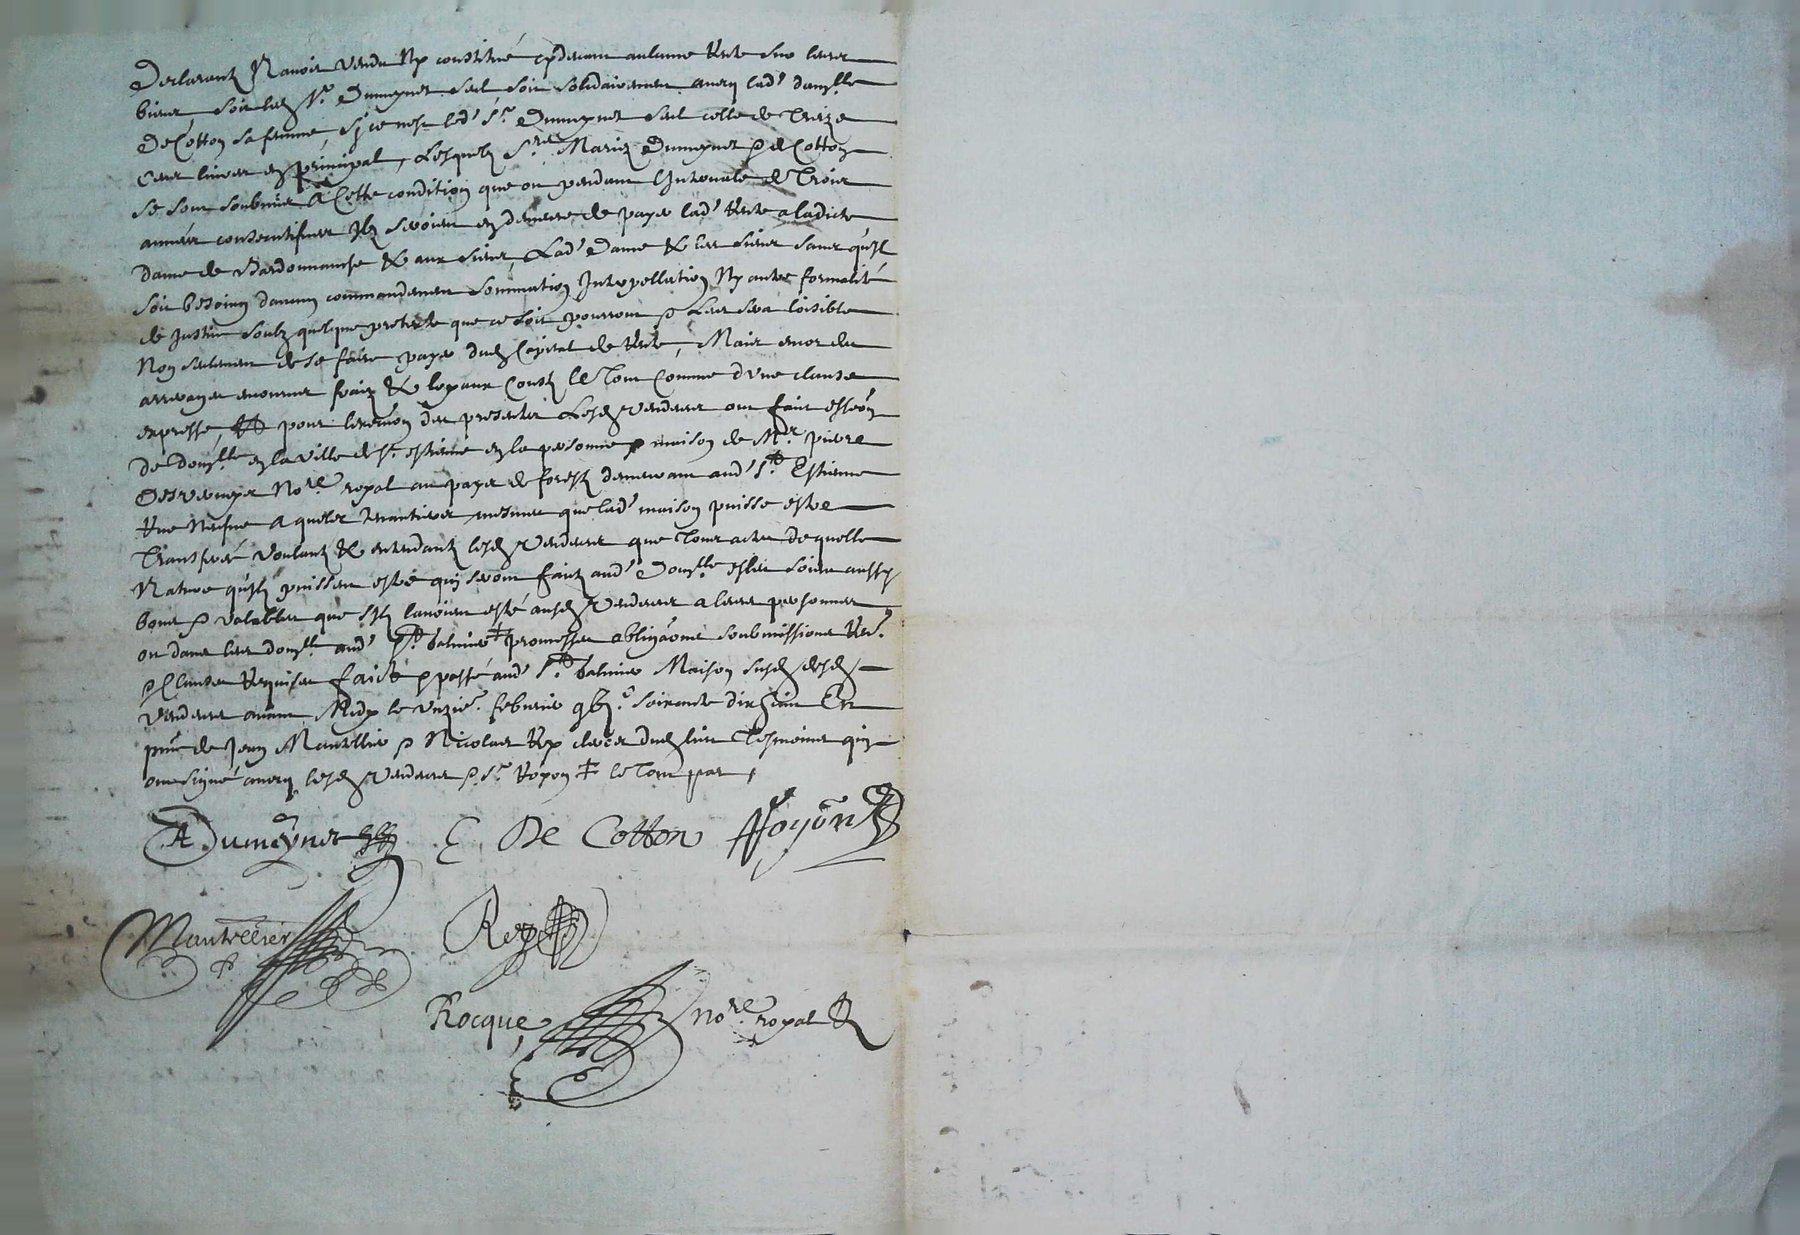 Declarantz Navoir vendu Ny constitué cydevant aulcune Rente sur leurs
biens soit led Sr. Dumeynet seul soit solidairement avecq lad' damlle
De Cotton sa femme sy ce nest led' Sr. Dumeynet seul celle de Treize
cens livres en principal, Lesquelz Srs Mariez Dumeynet & de Cotton
se sont soubmis A Cette condition que ou pendant L'Intervale de Trois
années consecutifves Ilz seroient en demeure de payer lad' Rente a ladicte
dame de Bardonnanche & aux siens, Lad' Dame & les siens sans qu'Il
soit besoing daucun commandement sommation Interpellation Ny autre formalité
de Justice soubz quelque pretexte que ce soit pourront & Leur sera loisible
Non seulement de se faire payer dud Capital de Rente, Mais encor des
arrerages encourus fraiz & loyaux Coustz le Tout Comme d'Une clause
expresse, Et pour lexeuõn des presentes Lesd Vendeurs ont faict eslõn
De domlle en la ville de St. estienne en la personne & maison de Mr. pierre
Desverneys Nore royal au pays de forestz demeurant aud' St Estienne
Rue Neufve a quelz tenantiers mesmes que lad' maison puisse estre
Transferé Voulantz & entendantz lesd Vendeurs que Tous actes de quelle
Nature qu'Ilz puissent estre quy seront faictz aud' Domlle esleu soient aussy
bons & valables que s'Ilz lavoient esté ausd Vendeurs a leurs personnes
ou dans leur domlle aud' St. Galmier ‡ promesses obligaõns soubmissions Ren.
& Clauses Requises faict & passé aud' St Galmier Maison susd desd
Vendeurs avant Midy le unzie. febvrier gbj.c soixante dix En
pñce de Jean Mantellier & Nicolas Rey clercz dud lieu Tesmoins quy
ont signé avecq lesd Vendeurs & Sr. Royon ‡ le Tout par,
A Dumeynet C. De Cotton Royon
Mantellier Rey
Rocque, Nore royal